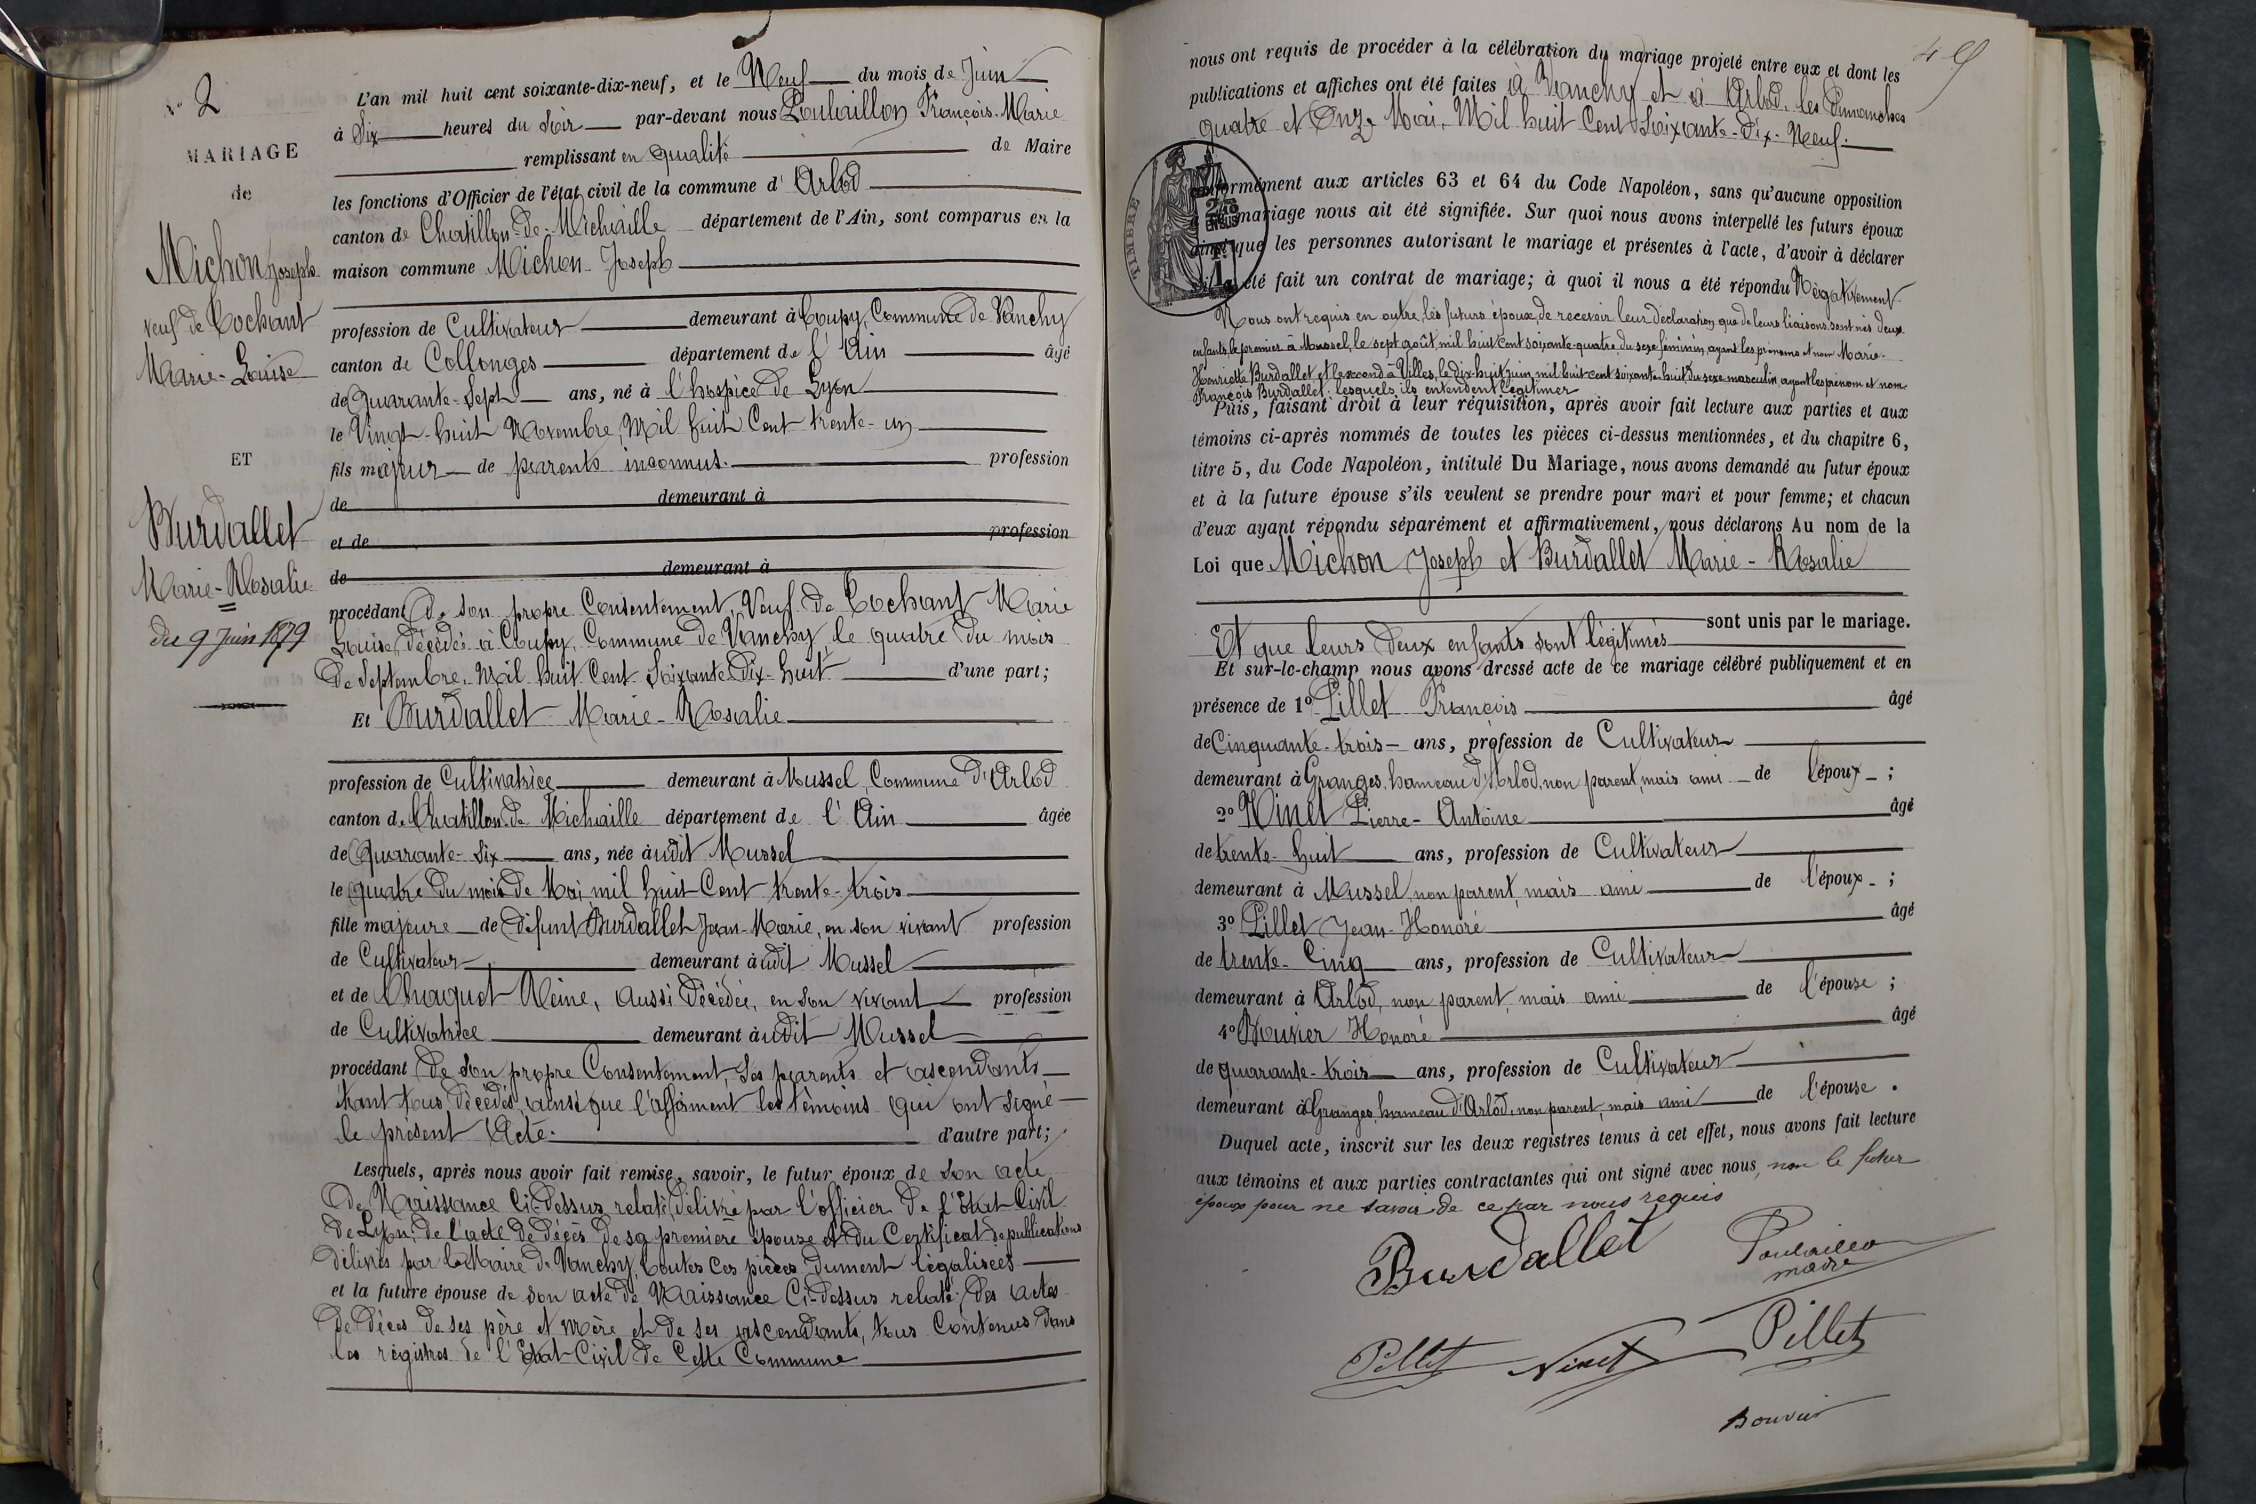 N° 2
MARIAGE
de
Michon Joseph
veuf de Cochant
Marie-Louise
ET
Burdallet
Marie-Rosalie
du 9 Juin 1879
L'an mil huit cent soixante-dix-neuf, et le Neuf du mois de Juin
à Six heures du Soir par-devant nous Poulaillon François-Marie
remplissant en qualité de Maire
les fonctions d'Officier de l'état civil de la commune d'Arlod
canton de Chatillon-de-Michaille département de l'Ain, sont comparus en la
maison commune Michon Joseph
profession de Cultivateur demeurant à Coupy, Commune de Vanchy
canton de Collonges département de l'Ain âgé
de Quarante-Sept ans, né à l'hospice de Lyon
le Vingt-huit Novembre, Mil huit Cent trente-un
fils majeur de parents inconnus. profession
de demeurant à
et de profession
de demeurant à
procédant de son propre Consentement, Veuf de Cochant Marie
Louise, décédée à Coupy, Commune de Vanchy le quatre du mois
de Septembre, Mil huit Cent Soixante-Dix-huit d'une part;
Et Burdallet Marie-Rosalie
profession de Cultivatrice demeurant à Mussel, Commune d'Arlod
canton de Chatillon de Michaille département de l'Ain âgée
de Quarante-Six ans, née àudit Mussel
le quatre du mois de Mai, mil huit Cent trente-trois
fille majeure de défunt Burdallet Jean-Marie, en son vivant profession
de Cultivateur demeurant àudit Mussel
et de Chaquet Reine, aussi Décédée, en son vivant profession
de Cultivatrice demeurant àudit Mussel
procédant de son propre Consentement, Ses parents et ascendants
étant tous décédés, ainsi que l'affirment les témoins qui ont signé
le présent Acte. d'autre part;
Lesquels, après nous avoir fait remise, savoir, le futur époux de son acte
de Naissance Ci-Dessus relaté, délivré par l'officier de l'Etat Civil
de Lyon, de l'acte de décès de sa première épouse et du Certificat de publications
délivrés par le Maire de Vanchy, toutes ces pièces dument légalisées
et la future épouse de son acte de Naissance Ci-Dessus relaté; des actes
de Décès de ses père et mère et de ses ascendants, tous Contenus dans
les registres de l'Etat-Civil de Cette Commune
49
nous ont requis de procéder à la célébration du mariage projeté entre eux et dont les
publications et affiches ont été faites à Vanchy et à Arlod, les Dimanches
quatre et Onze Mai, Mil huit Cent Soixante-Dix-Neuf.
conformément aux articles 63 et 64 du Code Napoléon, sans qu'aucune opposition
mariage nous ait été signifiée. Sur quoi nous avons interpellé les futurs époux
ainsi que les personnes autorisant le mariage et présentes à l'acte, d'avoir à déclarer
été fait un contrat de mariage; à quoi il nous a été répondu Négativement.
TIMBRE
Nous ont requis en outre, les futurs époux, de recevoir leur déclaration que de leurs liaisons sont nés deux
enfants, le premier à Mussel, le sept août, mil huit cent soixante-quatre, du sexe féminin, ayant les prénoms et nom Marie-
Henriette Burdallet et le second à Villes, le dix-huit juin, mil huit cent soixante-huit du sexe masculin, ayant les prénom et nom
François Burdallet; lesquels ils entendent légitimer
Puis, faisant droit à leur réquisition, après avoir fait lecture aux parties et aux
témoins ci-après nommés de toutes les pièces ci-dessus mentionnées, et du chapitre 6,
titre 5, du Code Napoléon, intitulé Du Mariage, nous avons demandé au futur époux
et à la future épouse s'ils veulent se prendre pour mari et pour femme; et chacun
d'eux ayant répondu séparément et affirmativement, nous déclarons Au nom de la
Loi que Michon Joseph et Burdallet Marie-Rosalie
sont unis par le mariage.
Et que leurs deux enfants sont légitimés
Et sur-le-champ nous avons dressé acte de ce mariage célébré publiquement et en
présence de 1° Pillet François âgé
de Cinquante-trois ans, profession de Cultivateur
demeurant à Granges, hameau d'Arlod, non parent, mais ami de l'époux;
2° Ninet Pierre-Antoine âgé
de trente-huit ans, profession de Cultivateur
demeurant à Mussel, non parent, mais ami de l'époux;
3° Pillet Jean-Honoré âgé
de trente-Cinq ans, profession de Cultivateur
demeurant à Arlod, non parent, mais ami de l'épouse;
4° Bouvier Honoré âgé
de quarante-trois ans, profession de Cultivateur
demeurant à Granges, hameau d'Arlod, non parent, mais ami de l'épouse.
Duquel acte, inscrit sur les deux registres tenus à cet effet, nous avons fait lecture
aux témoins et aux parties contractantes qui ont signé avec nous, non le futur
époux pour ne savoir, de ce par nous requis
Burdallet
Poulaillon
maire
Pillet Ninet Pillet
Bouvier